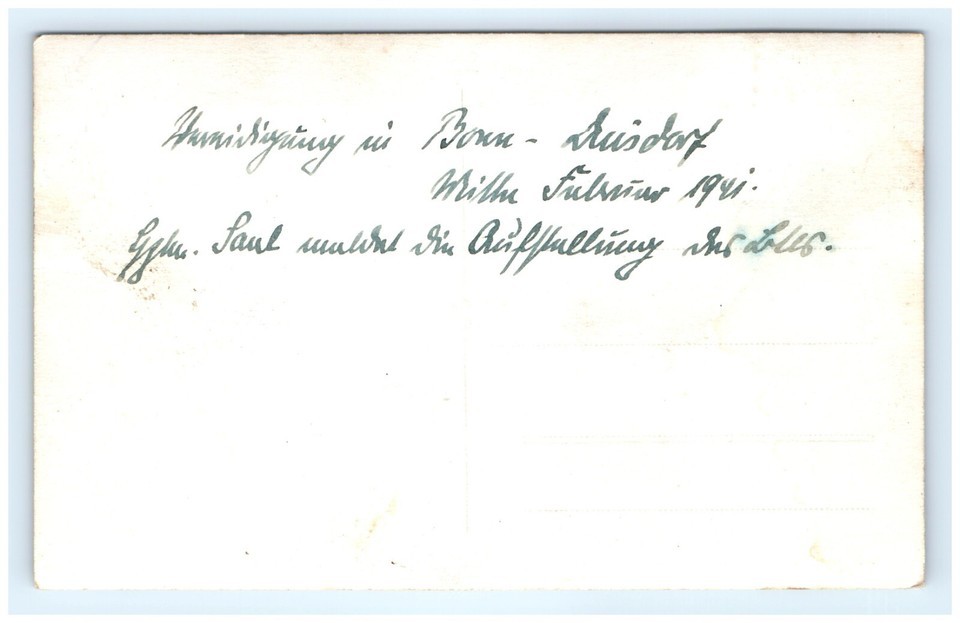 Vereidigung in Bonn - Duisdorf
Mitte Februar 1941.
Hptm. Saul meldet die Aufstellung des Btls.